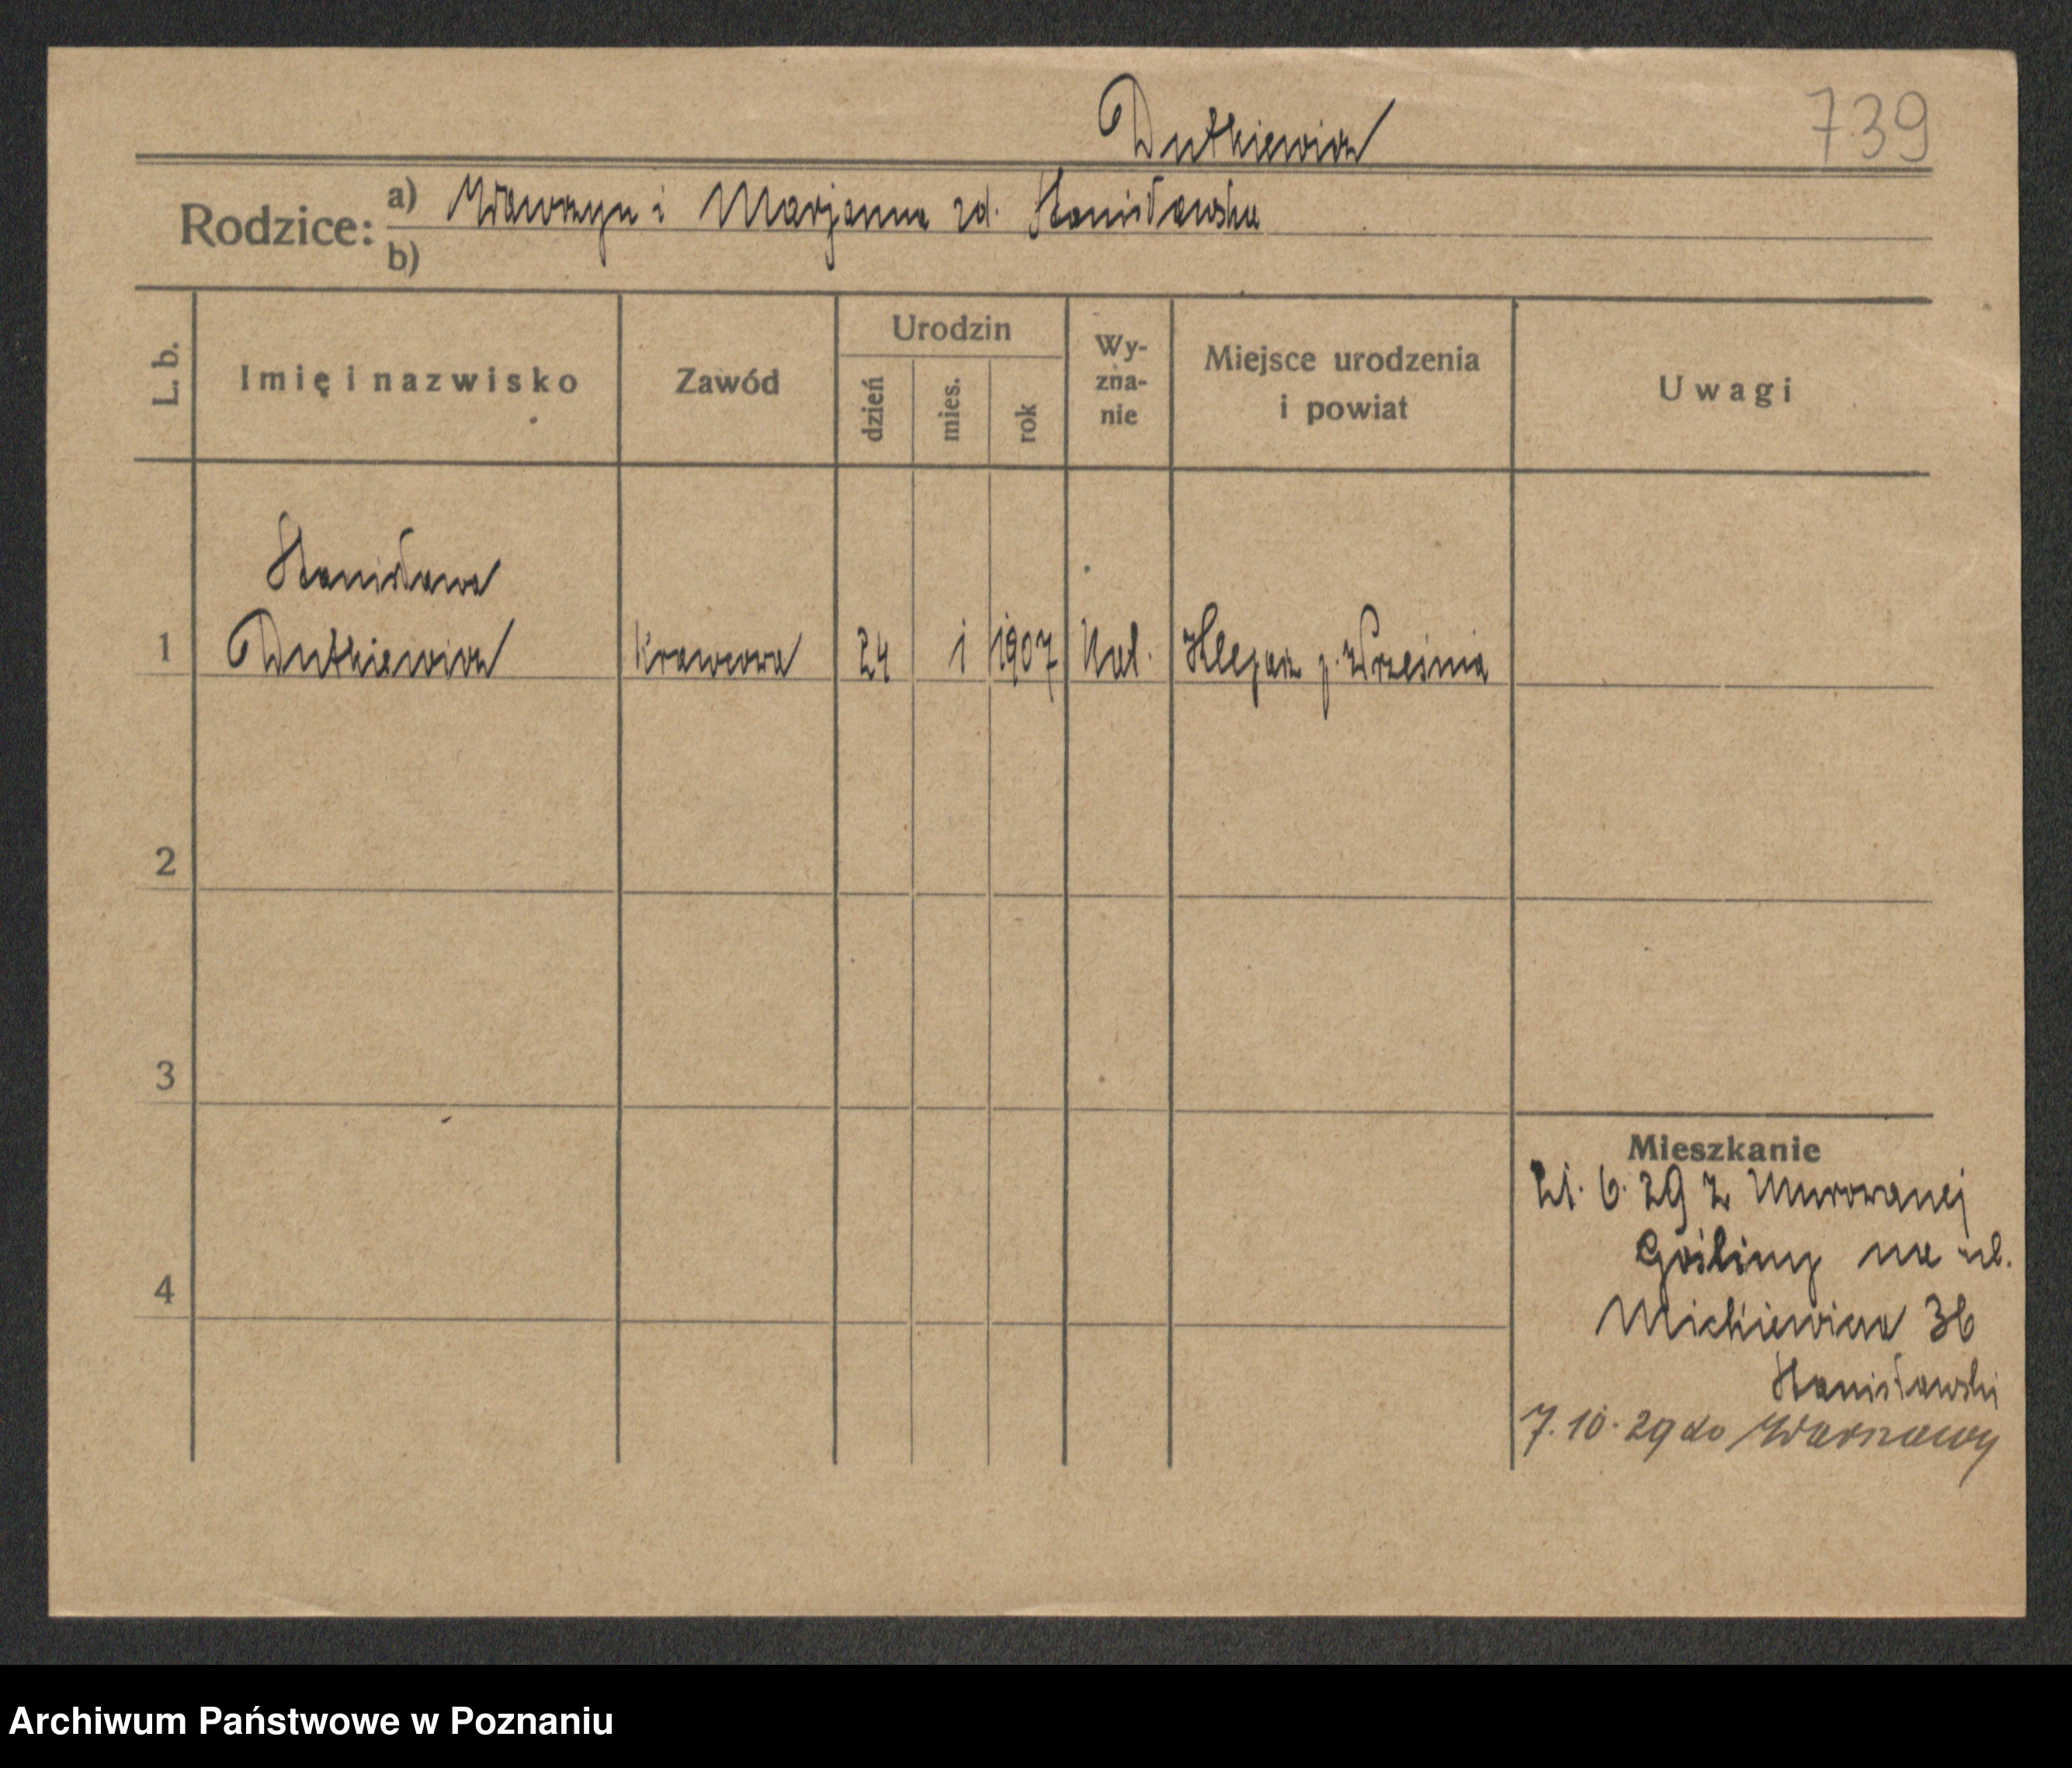 Dutkiewicz
739
Rodzice:
a) Wawrzyn i Marjanna zd. Stanisławska
b)
L. b.
Imię i nazwisko
Zawód
Urodzin
dzień
mies.
rok
Wy-
zna-
nie
Miejsce urodzenia
i powiat
Uwagi
Stanisława
1 Dutkiewicz Krawcowa 24 1 1907 Kat. p. Września
2
3
4
Mieszkanie
21. 6. 29 z Murowanej
Gośliny na ul.
Mickiewicza 36
Stanisławski
7. 10. 29 do Warszawy
Archiwum Państwowe w Poznaniu